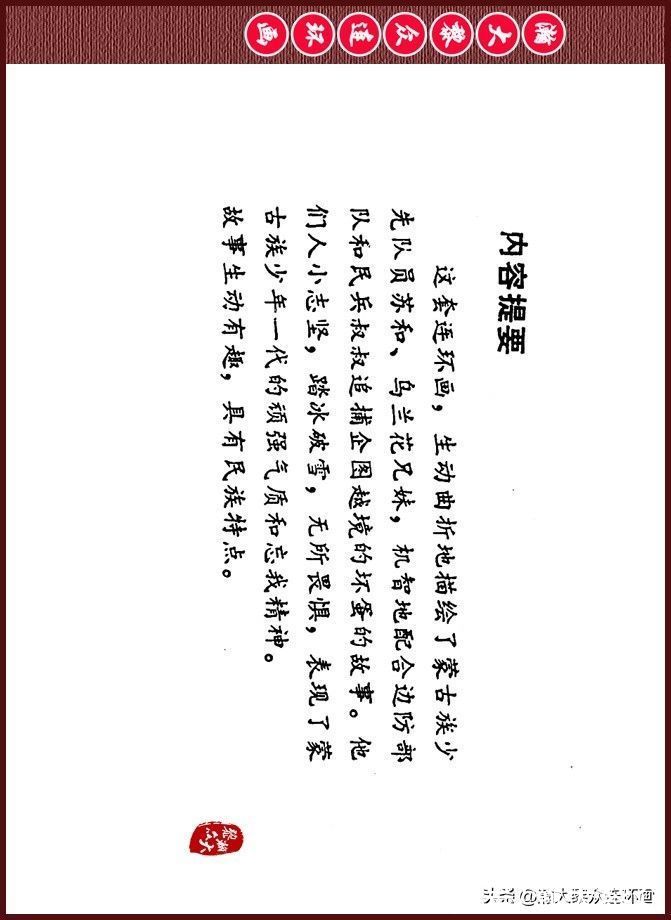 瀚大黎众连环画
内容提要
这套连环画，生动曲折地描绘了蒙古族少
先队员苏和、乌兰花兄妹，机智地配合边防部
队和民兵叔叔追捕企图越境的坏蛋的故事。他
们人小志坚，踏冰破雪，无所畏惧，表现了蒙
古族少年一代的顽强气质和忘我精神。
故事生动有趣，具有民族特点。
瀚大黎众
头条@瀚大黎众连环画